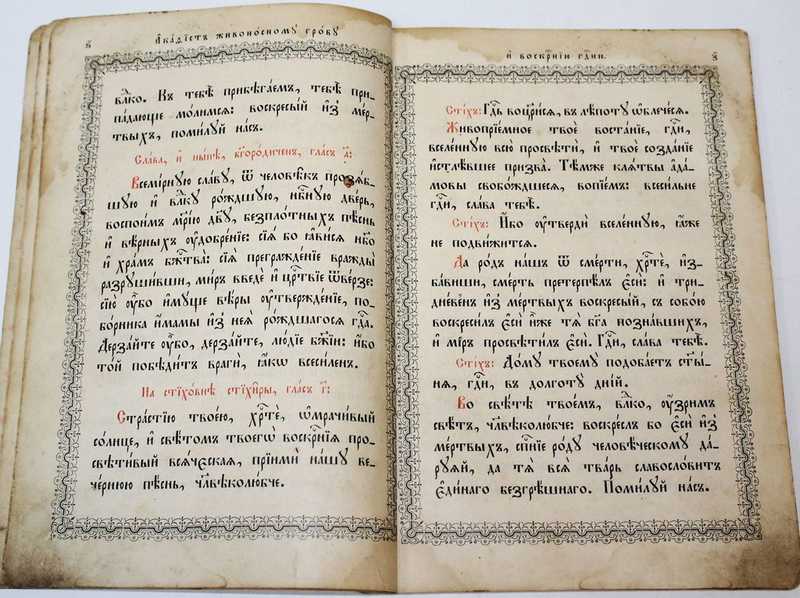 Акаѳістъ живоносному гробу
влⷣко. Къ тебѣ прибѣгаемъ, тебѣ при-
падающе молимсѧ: воскресый и҆з̾ мер-
твыхъ, помилуй насъ.
Слава, и҆ нынѣ, бг҃ородиченъ, гласъ а҃:
Всемірную славу, ѿ человѣкъ прозѧб-
шую и҆ влⷣку рождшую, нбⷭ҇ную дверь,
воспоимъ мр҃ію дв҃у, безплотныхъ пѣснь
и҆ вѣрныхъ ᲂу҆добреніе: сіѧ бо ꙗ҆висѧ нб҃о
и҆ храмъ бжⷭ҇тва: сіѧ прегражденіе вражды
разрушивши, миръ введе и҆ црⷭ҇твіе ѿверзе:
сію ᲂу҆бо имуще вѣры ᲂу҆твержденіе, по-
борника имамы и҆з̾ неѧ рождшагосѧ гдⷭ҇а.
Дерзайте ᲂу҆бо, дерзайте, людіе бж҃іи: и҆бо
той побѣдитъ враги, ꙗ҆кѡ всесиленъ.
На стїховнѣ стїхиры, гласъ а҃:
Страстію твоею, хрⷭ҇те, ѡ҆мрачивый
солнце, и҆ свѣтомъ твоегѡ воскрⷭ҇нїѧ про-
свѣтивый всѧческаѧ, пріими нашу ве-
чернюю пѣснь, чл҃вѣколюбче.
и҆ воскрⷭ҇нїи гдⷭ҇ни.
Стїхъ: Гдⷭ҇ь воцр҃исѧ, въ лѣпоту ѡ҆блечесѧ.
Живопріемное твое востаніе, гдⷭ҇и,
вселенную всю просвѣти, и҆ твое созданіе
и҆стлѣвшее призва. Тѣмже клѧтвы а҆да-
мовы свобождшесѧ, вопіемъ: всесильне
гдⷭ҇и, слава тебѣ.
Стїхъ: И҆бо ᲂу҆тверди вселенную, ꙗ҆же
не подвижитсѧ.
Да родъ нашъ ѿ смерти, хрⷭ҇те, и҆з-
бавиши, смерть претерпѣлъ є҆си: и҆ три-
дневенъ и҆з̾ мертвыхъ воскресый, съ собою
воскресилъ є҆си и҆же тѧ бг҃а познавшихъ,
и҆ міръ просвѣтилъ є҆си. Гдⷭ҇и, слава тебѣ.
Стїхъ: Дому твоему подобаетъ ст҃ы-
нѧ, гдⷭ҇и, въ долготу дній.
Во свѣтѣ твоемъ, влⷣко, ᲂу҆зримъ
свѣтъ, чл҃вѣколюбче: воскреслъ бо є҆си и҆з̾
мертвыхъ, спⷭ҇нїе роду человѣческому да-
руѧй, да тѧ всѧ тварь славословитъ
є҆динаго безгрѣшнаго. Помилуй насъ.